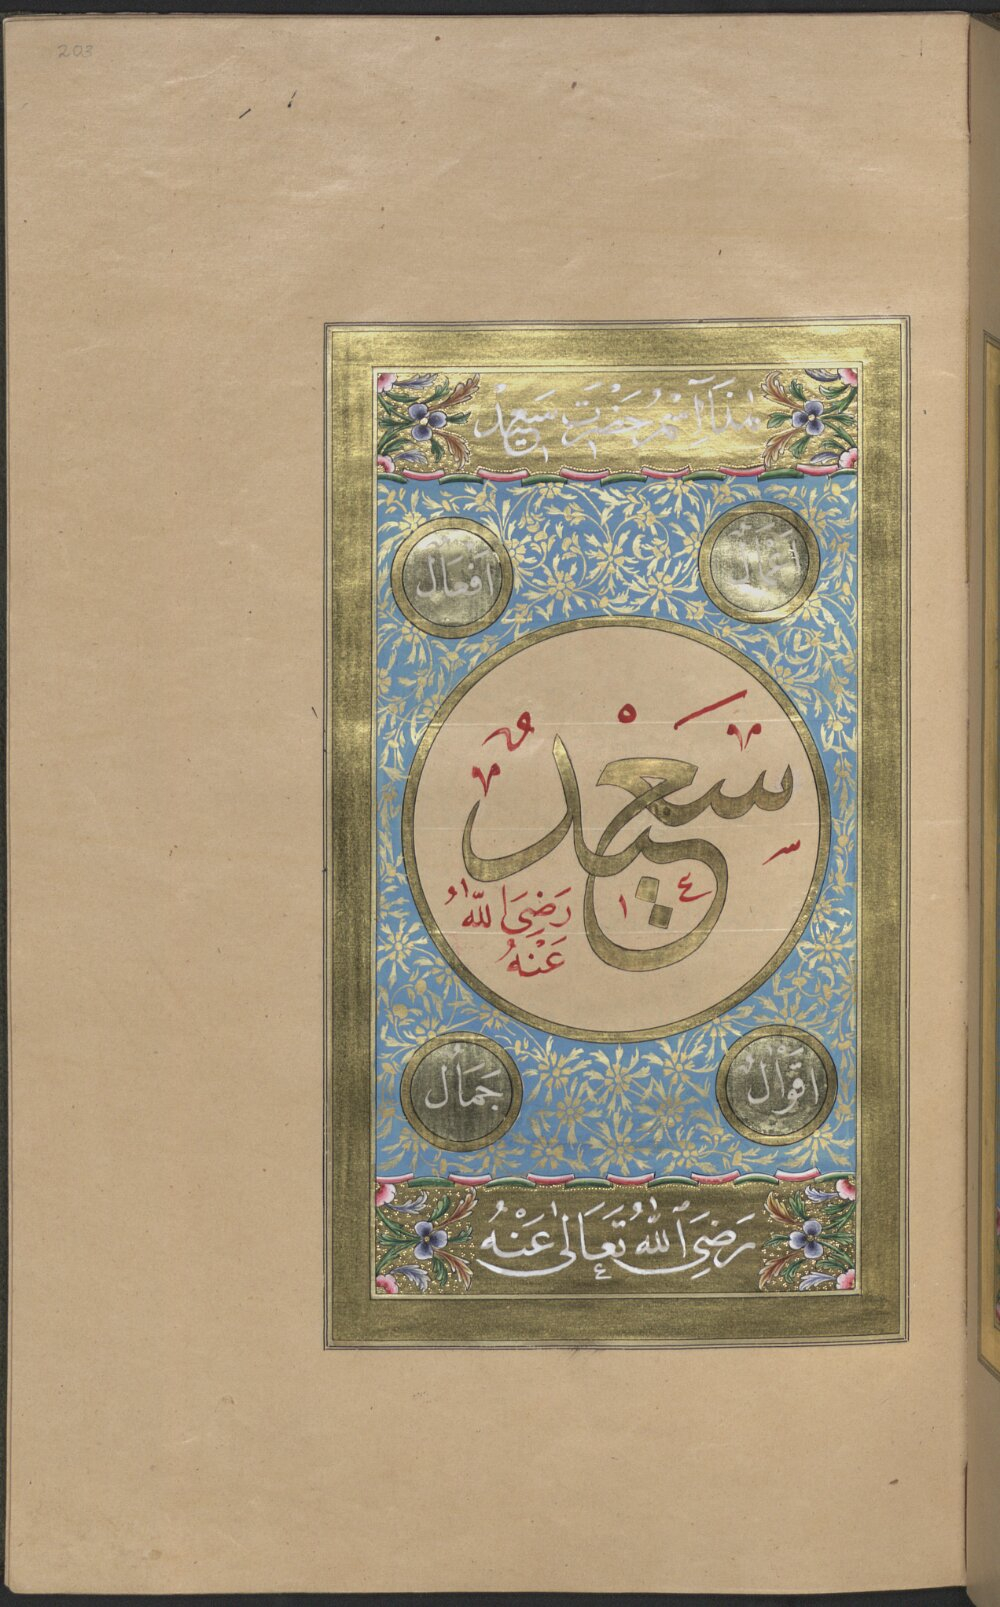 203
هٰذَا اِسْمُ حَضْرَتِ سَعِيدْ
اَعْمَال
اَفْعَال
سَعِيدٌ
رَضِيَ اللّٰهُ
عَنْهُ
اَقْوَال
جَمَال
رَضِيَ ٱللّٰهُ تَعَالٰى عَنْهُ